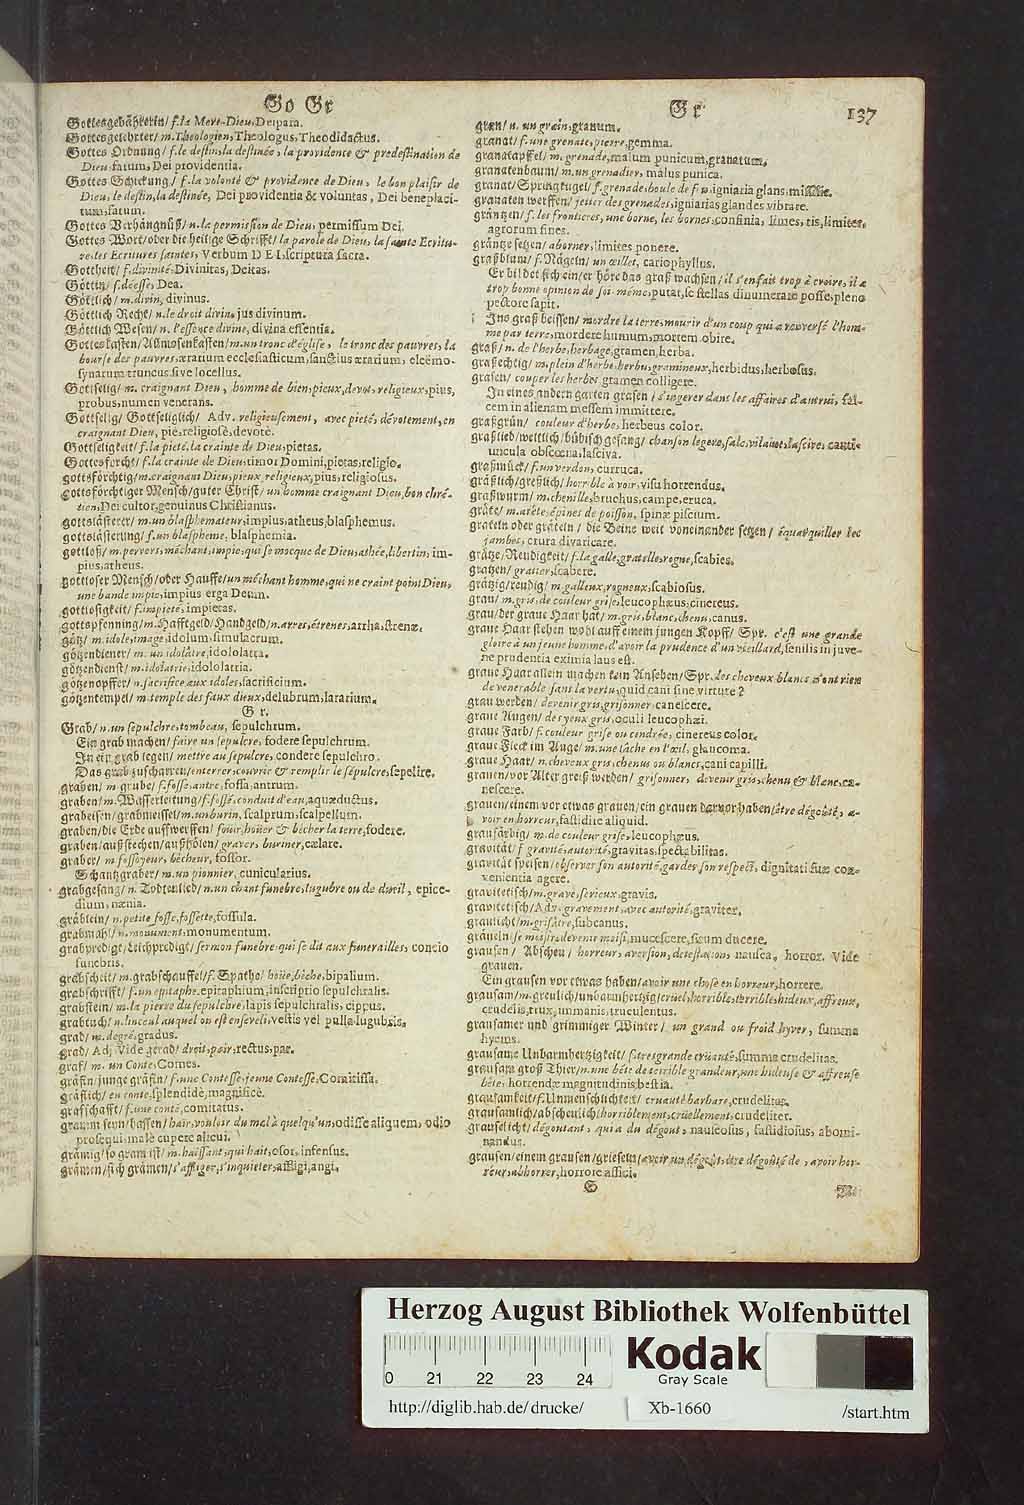 Go Gr
Gr
137
Gottesgebährerin/ f. la Mere-Dieu, Deipara.
Gottesgelehrter/ m. Theologien, Theologus, Theodidactus.
Gottes Ordnung/ f. le destin, la destinée, la providence & predestination de
Dieu, fatum, Dei providentia.
Gottes Schickung/ f. la volonté & providence de Dieu, le bon plaisir de
Dieu, le destin, la destinée, Dei providentia & voluntas, Dei beneplaci-
tum, fatum.
Gottes Verhängnüß/ n. la permission de Dieu, permissum Dei.
Gottes Wort/ oder die heilige Schrifft/ la parole de Dieu, la sainte Ecritu-
re, les Ecritures saintes, Verbum DEI, scriptura sacra.
Gottheit/ f. divinité, Divinitas, Deitas.
Göttin/ f. déesse, Dea.
Göttlich/ m. divin, divinus.
Göttlich Recht/ n. le droit divin, jus divinum.
Göttlich Wesen/ n. l'essence divine, divina essentia.
Gotteskasten/ Allmosenkasten/ m. un tronc d'église, le tronc des pauvres, la
bourse des pauvres, ærarium ecclesiasticum, sanctius ærarium, eleëmo-
synarum truncus sive locellus.
Gottselig/ m. craignant Dieu, homme de bien, pieux, devot, religieux, pius,
probus, numen venerans.
Gottselig/ Gottseliglich/ Adv. religieusement, avec pieté, dévotement, en
craignant Dieu, piè, religiosè, devotè.
Gottseligkeit/ f. la pieté, la crainte de Dieu, pietas.
Gottesforcht/ f. la crainte de Dieu, timor Domini, pietas, religio.
gottsförchtig/ m. craignant Dieu, pieux, religieux, pius, religiosus.
gottsförchtiger Mensch/ guter Christ/ un homme craignant Dieu, bon chré-
tien, Dei cultor, genuinus Christianus.
gottslästerer/ m. un blasphemateur, impius, atheus, blasphemus.
gottslästerung/ f. un blaspheme, blasphemia.
gottloß/ m. pervers, méchant, impie, qui se mocque de Dieu, athée, libertin, im-
pius, atheus.
gottloser Mensch/ oder Hauffe/ un méchant homme, qui ne craint point Dieu,
une bande impie, impius erga Deum.
gottlosigkeit/ f. impieté, impietas.
gottspfenning/ m. Hafftgeld/ Handgeld/ n. arres, étrenes, arrha, strenæ.
götz/ m. idole, image, idolum, simulacrum.
götzendiener/ m. un idolâtre, idololatra.
götzendienst/ m. idolatrie, idololatria.
götzenopffer/ n. sacrifice aux idoles, sacrificium.
götzentempel/ m. temple des faux dieux, delubrum, lararium.
Gr.
Grab/ n. un sepulchre, tombeau, sepulchrum.
Ein grab machen/ faire un sepulcre, fodere sepulchrum.
In ein grab legen/ mettre au sepulcre, condere sepulchro.
Das grab zuscharren/ enterrer, couvrir & remplir le sépulcre, sepelire.
graben/ m grube/ f. fosse, antre, fossa, antrum.
graben/ m. Wasserleitung/ f. fossé, conduit d'eau, aquæductus.
grabeisen/ grabmeissel/ m. un burin, scalprum, scalpellum.
graben/ die Erde auffwerffen/ fouir, hoüer & bêcher la terre, fodere.
graben/ außstechen/ außhölen/ graver, buriner, cælare.
graber/ m fossoyeur, bêcheur, fossor.
Schantzgraber/ m. un pionnier, cunicularius.
grabgesang/ n. Todtenlied/ n. un chant funebre, lugubre ou de dueil, epice-
dium, nænia.
gräblein/ n. petite fosse, fossette, fossula.
grabmahl/ n. monument, monumentum.
grabpredigt/ Leichpredigt/ sermon funebre qui se dit aux funerailles, concio
funebris.
grabscheit/ m. grabschauffel/ f. Spathe/ hoüe, bêche, bipalium.
grabschrifft/ f. un epitaphe, epitaphium, inscriptio sepulchralis.
grabstein/ m. la pierre du sepulchre, lapis sepulchralis, cippus.
grabtuch/ n. linceul auquel on est enseveli, vestis vel pulla lugubris.
grad/ m. degré, gradus.
grad/ Adj. Vide gerad/ droit, pair, rectus, par.
graf/ m. un Conte, Comes.
gräfin/ junge gräfin/ f. une Contesse, jeune Contesse, Comitissa.
gräflich/ en conte, splendidè, magnificè.
grafschafft/ f. une conté, comitatus.
gramm seyn/ hassen/ haïr, vouloir du mal à quelqu'un, odisse aliquem, odio
prosequi, malè cupere alicui.
grämig/ so gram ist/ m. haissant, qui hait, osor, infensus.
grämen/ sich grämen/ s'affliger, s'inquieter, affligi, angi.
gran/ n. un grain, granum.
granat/ f. une grenate, pierre, gemma.
granatapffel/ m. grenade, malum punicum, granatum.
granatenbaum/ m. un grenadier, malus punica.
granat/ Sprungkugel/ f. grenade, boule de feu, igniaria glans, missile.
granaten werffen/ jetter des grenades, igniarias glandes vibrare.
gräntzen/ f. les frontieres, une borne, les bornes, confinia, limes, tis, limites,
agrorum fines.
gräntze setzen/ aborner, limites ponere.
graßblum/ f. Nägeln/ un œillet, cariophyllus.
Er bildet sich ein/ er höre das graß wachsen/ il s'enfait trop à croire, il a
trop bonne opinion de soi-même, putat, se stellas dinumerare posse, pleno
pectore sapit.
Ins graß beissen/ mordre la terre, mourir d'un coup qui a renversé l'hom-
me par terre, mordere humum, mortem obire.
graß/ n. de l'herbe, herbage, gramen, herba.
graßechtig/ m. plein d'herbe, herbu, gramineux, herbidus, herbosus.
grasen/ couper les herbes, gramen colligere.
In eines andern garten grasen/ s'ingerer dans les affaires d'autrui, fal-
cem in alienam messem immittere.
graßgrün/ couleur d'herbe, herbeus color.
graßlied/ weltlich/ bübisch gesang/ chanson legere, sale, vilaine, lascive, canti-
uncula obscœna, lasciva.
graßmück/ f. un verdon, curruca.
gräßlich/ greßlich/ horrible à voir, visu horrendus.
graßwurm/ m. chenille, bruchus, campe, eruca.
gräte/ m. arête, épines de poisson, spinæ piscium.
grateln oder gräteln/ die Beine weit voneinander setzen/ équarquiller les
jambes, crura divaricare.
grätze/ Reudigkeit/ f. la galle, gratelle, rogne, scabies.
gratzen/ gratter, scabere.
grätzig/ reudig/ m. galleux, rogneux, scabiosus.
grau/ m. gris, de couleur grise, leucophæus, cinereus.
grau/ der graue Haar hat/ m. gris, blanc, chenu, canus.
graue Haar stehen wohl auff einem jungen Kopff/ Spr. c'est une grande
gloire à un jeune homme, d'avoir la prudence d'un vieillard, senilis in juve-
ne prudentia eximia laus est.
graue Haar allein machen kein Ansehen/ Spr. les cheveux blancs n'ont rien
de venerable sans la vertu, quid cani sine virtute?
grau werden/ devenir gris, grisonner, canescere.
graue Augen/ des yeux gris, oculi leucophæi.
graue Farb/ f. couleur grise ou cendrée, cinereus color.
graue Fleck im Auge/ m. une tâche en l'œil, glaucoma.
graue Haar/ n. cheveux gris, chenus ou blancs, cani capilli.
grauen/ vor Alter greiß werden/ grisonner, devenir gris, chenu & blanc, ca-
nescere.
grauen/ einem vor etwas grauen/ ein grauen darvor haben/ être dégoûté, a-
voir en horreur, fastidire aliquid.
grausärbig/ m. de couleur grise, leucophæus.
gravität/ f gravité, autorité, gravitas, spectabilitas.
gravität speisen/ observer son autorité, garder son respect, dignitati suæ con-
venienta agere.
gravitetisch/ m. grave, serieux, gravis.
gravitetisch/ Adv. gravement, avec autorité, graviter.
graulicht/ m. grisâtre, subcanus.
graueln/ se moisir, devenir moisi, mucescere, sicum ducere.
grausen/ Abscheu/ horreur, aversion, detestation, nausea, horror. Vide
grauen.
Ein grausen vor etwas haben/ avoir une chose en horreur, horrere.
grausam/ m. greulich/ unbarmhertzig/ cruel, horrible, terrible, hideux, affreux,
crudelis, trux, immanis, truculentus.
grausamer und grimmiger Winter/ un grand ou froid hyver, summa
hyems.
grausame Unbarmhertzigkeit/ f. tres grande crüauté, summa crudelitas.
grausam groß Thier/ n. une bête de terrible grandeur, une hideuse & affreuse
bête, horrendæ magnitudinis bestia.
grausamkeit/ f. Unmenschlichkeit/ cruauté barbare, crudelitas.
grausamlich/ abscheulich/ horriblement, crüellement, crudeliter.
grauselicht/ dégoutant, qui a du dégout, nauseosus, fastidiosus, abomi-
nandus.
grausen/ einem grausen/ grieseln/ avoir un dégoût, être dégoûté de, avoir hor-
reur, abhorrer, horrore affici.
S
Herzog August Bibliothek Wolfenbüttel
0 21 22 23 24
Kodak
Gray Scale
http://diglib.hab.de/drucke/
Xb-1660
/start.htm